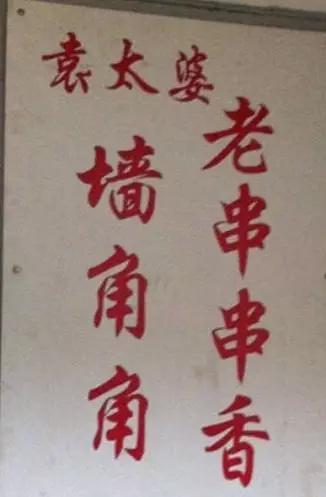 袁太婆
老串串香
墙角角